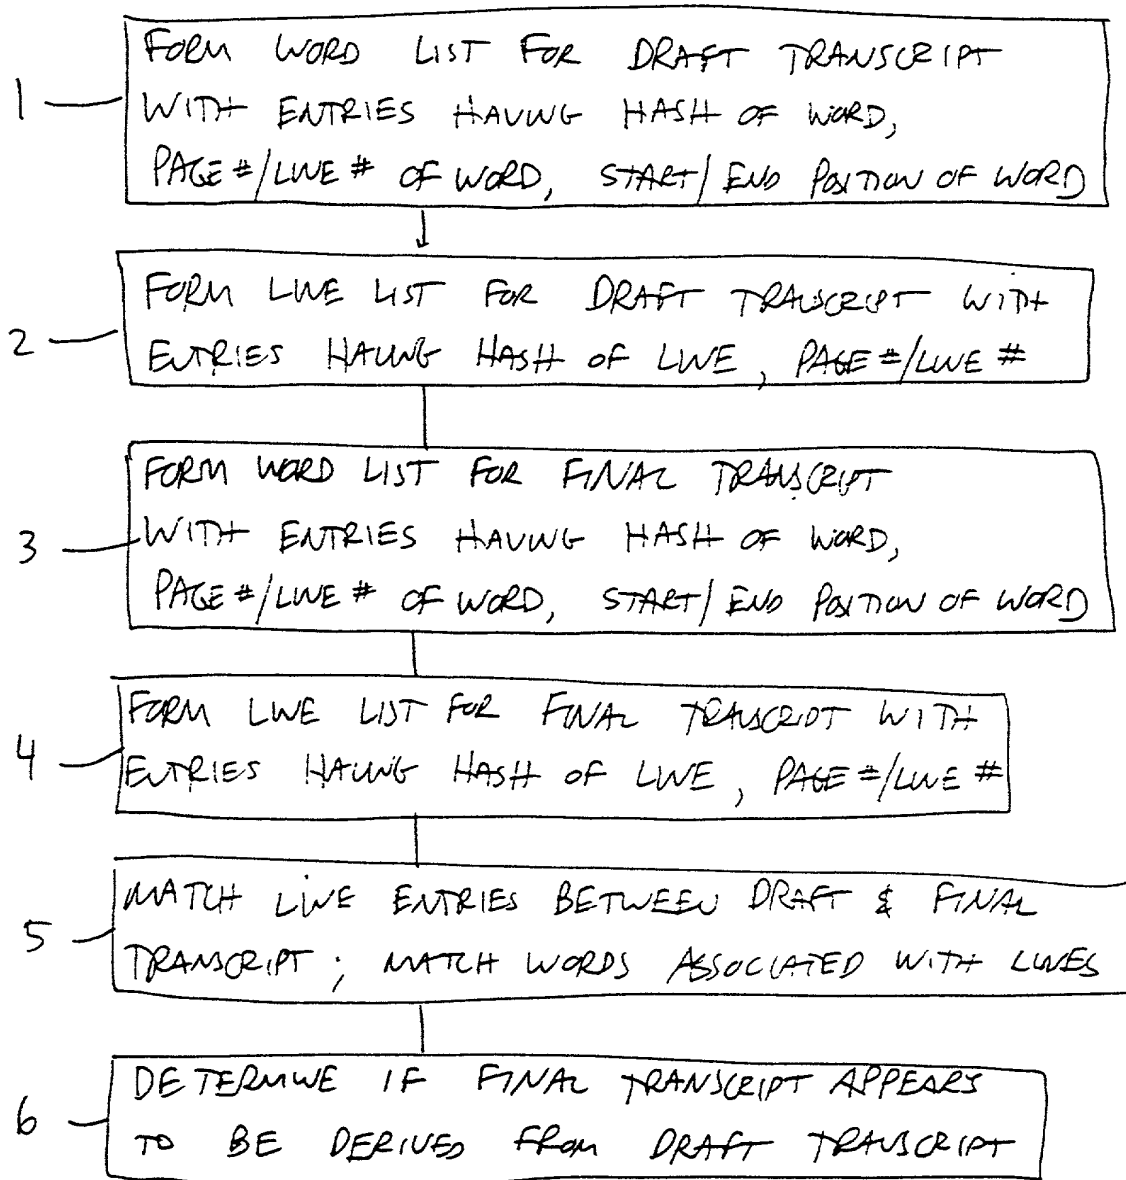 1
FORM WORD LIST FOR DRAFT TRANSCRIPT
WITH ENTRIES HAVING HASH OF WORD,
PAGE #/LINE # OF WORD, START/END POSITION OF WORD
2
FORM LINE LIST FOR DRAFT TRANSCRIPT WITH
ENTRIES HAVING HASH OF LINE, PAGE #/LINE #
3
FORM WORD LIST FOR FINAL TRANSCRIPT
WITH ENTRIES HAVING HASH OF WORD,
PAGE #/LINE # OF WORD, START/END POSITION OF WORD
4
FORM LINE LIST FOR FINAL TRANSCRIPT WITH
ENTRIES HAVING HASH OF LINE, PAGE #/LINE #
5
MATCH LINE ENTRIES BETWEEN DRAFT & FINAL
TRANSCRIPT; MATCH WORDS ASSOCIATED WITH LINES
6
DETERMINE IF FINAL TRANSCRIPT APPEARS
TO BE DERIVED FROM DRAFT TRANSCRIPT